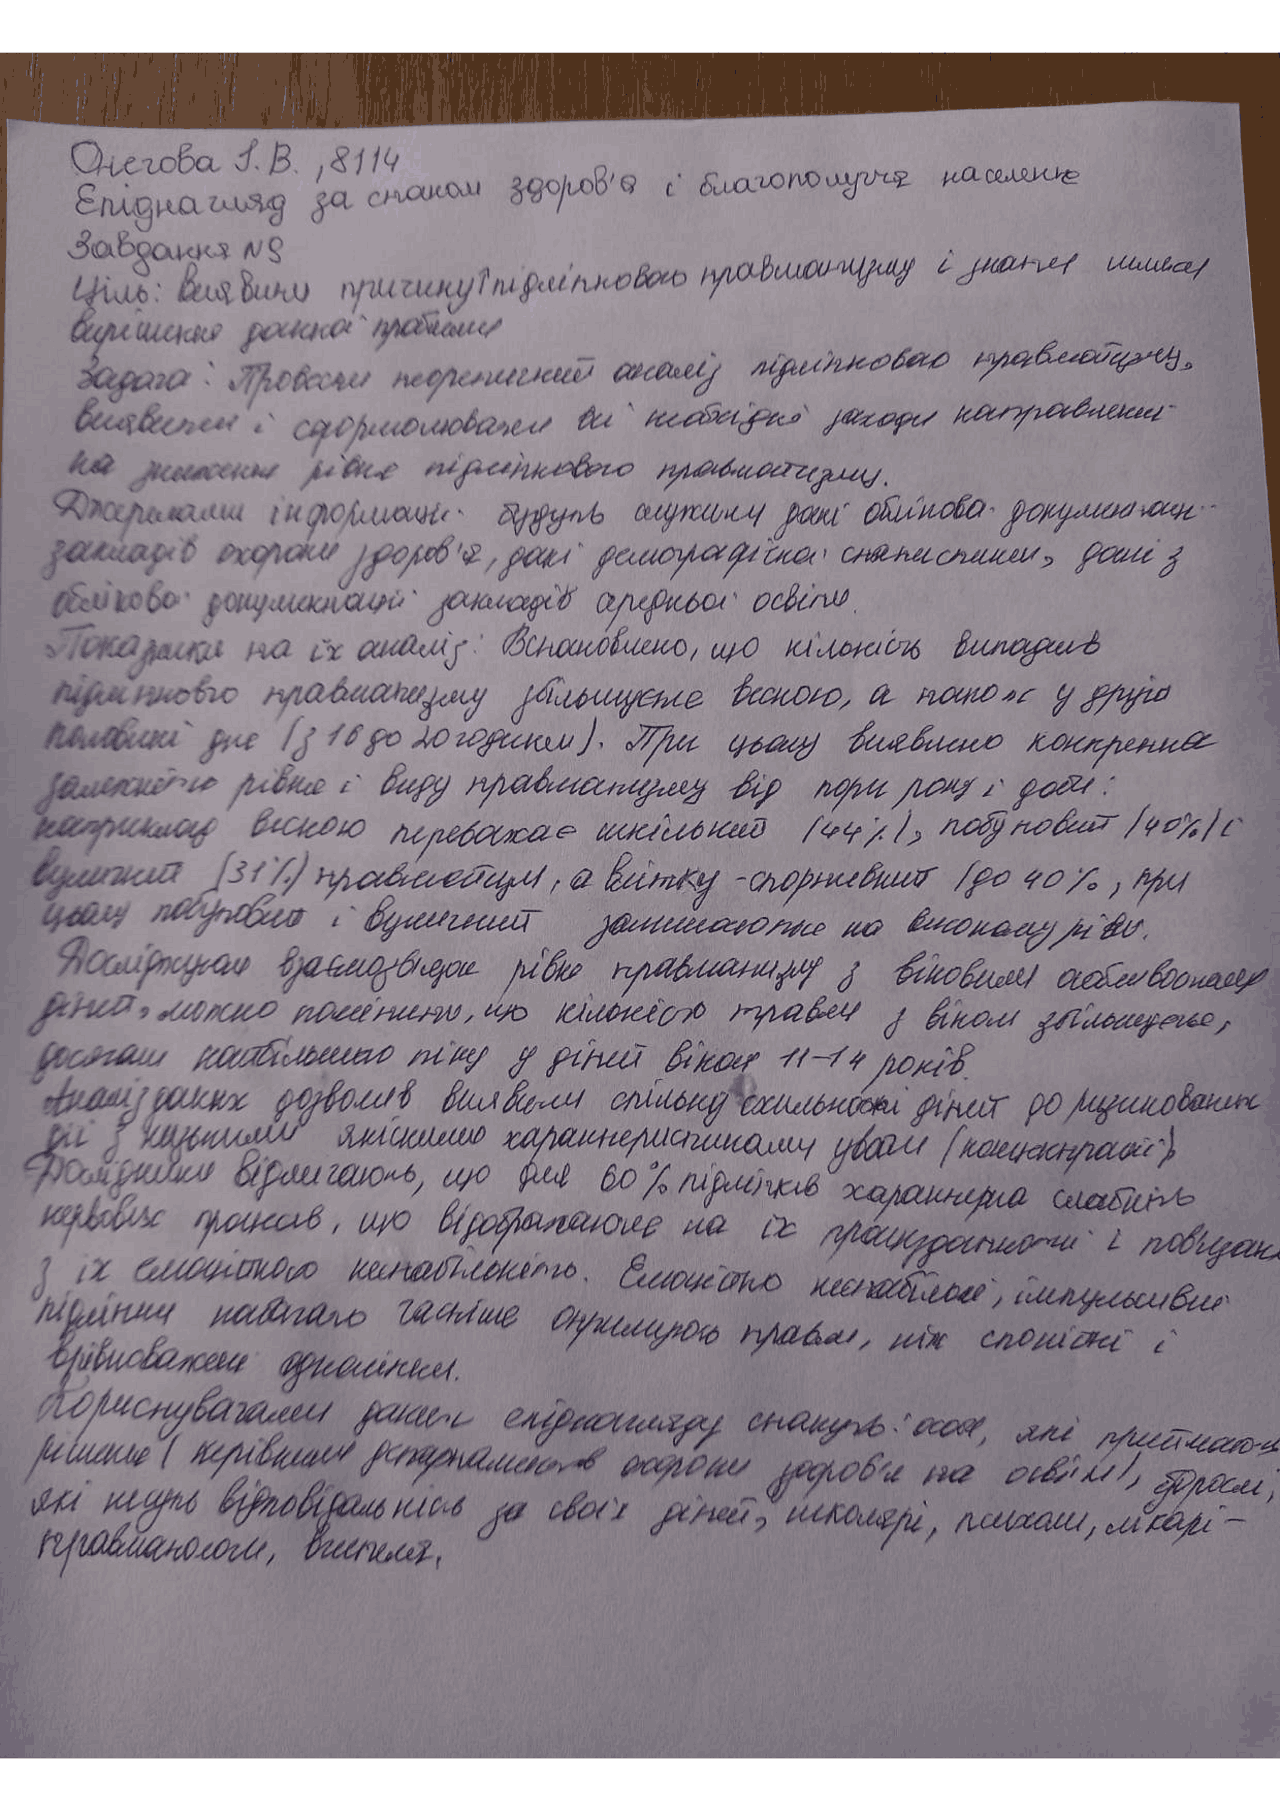 Онегова І.В., 8114
Епіднагляд за станом здоров'я і благополуччя населення
Завдання №9
Ціль: виявити причину підліткового травматизму і знайти шляхи
вирішення данної проблеми
Задача: Провести теоретичний аналіз підліткового травматизму,
виявити і сформолювати всі необхідні заходи направлені
на зниження рівня підліткового травматизму.
Джерелами інформації будуть служити дані облікової документації
закладів охорони здоров'я, дані демографічної статистики, дані з
облікової документації закладів середньої освіти.
Показники та їх аналіз: Встановлено, що кількість випадків
підліткового травматизму збільшується весною, а також у другій
половині дня (з 16 до 20 години). При цьому виявлено конкретна
залежність рівня і виду травматизму від пори року і доби:
наприклад весною переважає шкільний (44%), побутовий (40%) і
вуличний (31%) травматизм, а влітку - спортивний (до 40%, при
цьому побутовий і вуличний залишаються на високому рівні.
Досліджуючи взаємозв'язок рівня травматизму з віковими особливостями
дітей, можно помітити, що кількість травм з віком збільшується,
досягаючи найбільшого піку у дітей віком 11-14 років.
Аналіз даних дозволив виявити спільну схильності дітей до ризикованих
дії з низькими якісними характеристиками уваги (концентрації)
Дослідники відмічають, що для 60% підлітків характерна слабкість
нервових процесів, що відображаючє на їх працездатності і пов'язані
з їх емоційною нестабільністю. Емоційно нестабільні, імпульсивні
підлітки набагато частіше отримують травми, ніж спокійні і
врівноважені однолітки.
Користувачами даних епіднагляду стануть: особи, які приймають
рішення (керівники департаментів охорони здоров'я та освіти), дорослі,
які несуть відповідальність за своїх дітей, школярі, психологи, лікарі-
травматологи, вчителя.